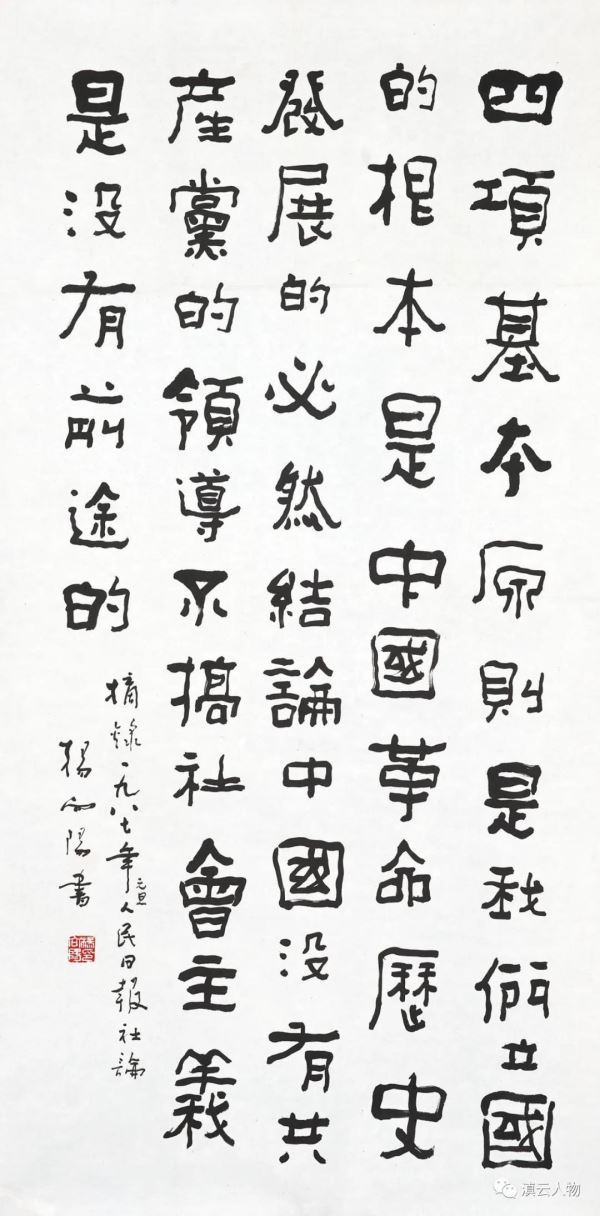 四項基本原則是我們立國
的根本是中國革命歷史
發展的必然結論中國没有共
產黨的領導不搞社會主義
是没有前途的
摘錄一九八七年元旦人民日報社論
楊向陽書
滇云人物